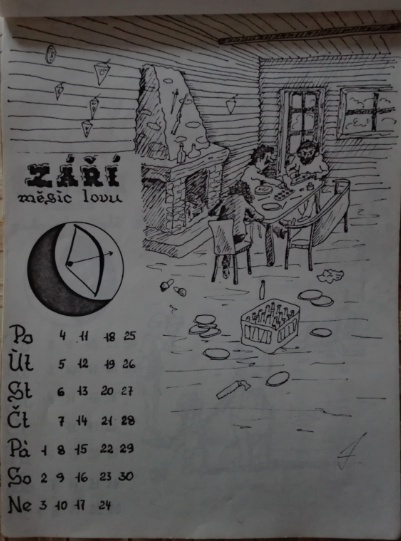 ZÁŘÍ
měsíc lovu
Po 4 11 18 25
Út 5 12 19 26
St 6 13 20 27
Čt 7 14 21 28
Pá 1 8 15 22 29
So 2 9 16 23 30
Ne 3 10 17 24